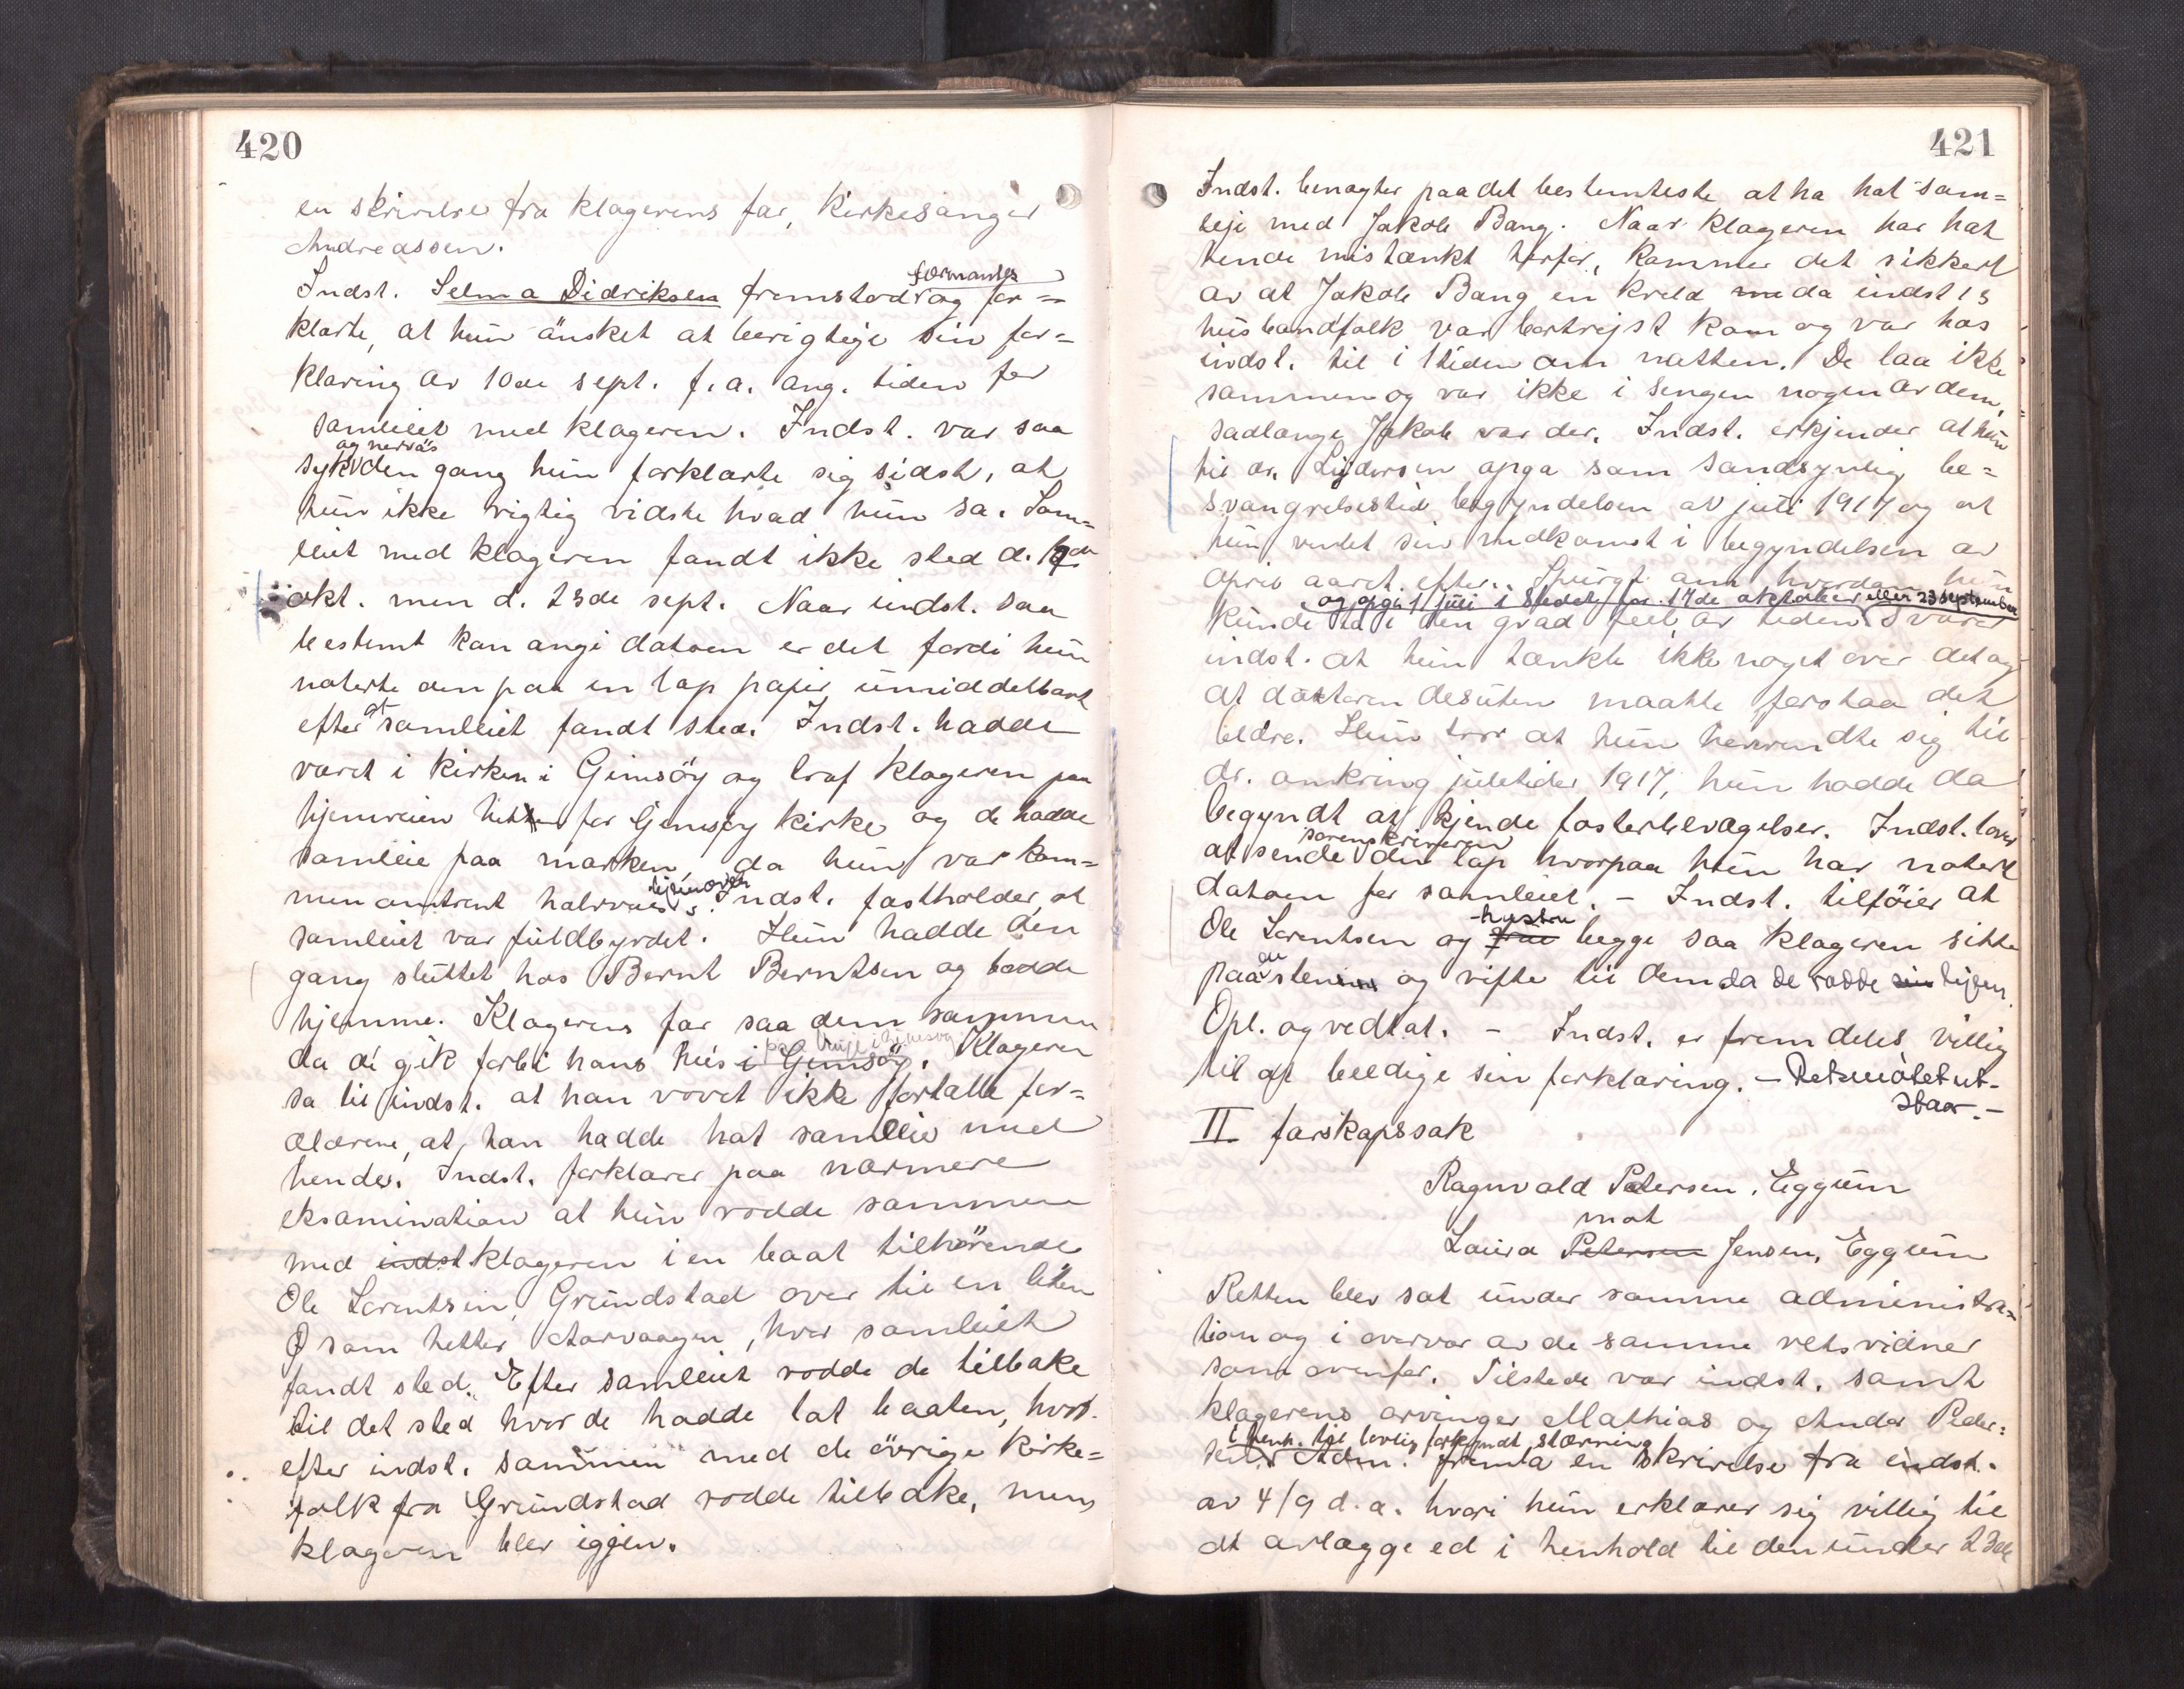 420
en skrivelse fra klagerens far, Kirkesanger
Andreassen.
formantes
Indst. Selma Didriksen fremstod og for=
klarte, at hun ønsket at berigtige sin for=
klaring av 10de sept. f. a. ang. tiden for
samleiet med klageren. Indst. var saa
og nervøs
syk den gang hun forklarte sig sidst, at
hun ikke rigtig vidste hvad hun sa. Sam=
leiet med klageren fandt ikke sted d.
okt. men d. 23de sept. Naar indst. saa
bestemt kan angi datoen er det fordi hun
noterte den paa en lap papir umiddelbart
efter at samleiet fandt sted. Indst. hadde
været i kirken i Gimsöy og traf klageren paa
hjemveien for Gimsöy kirke og de hadde
samleie paa marken, da hun var kom=
hjemover
men omtrent halvveis. Indst. fastholder, at
samleiet var fuldbyrdet. Hun hadde den
gang sluttet hos Bernt Berntsen og bodde
hjemme. Klagerens far saa dem sammen
da de gik forbi hans hus i Gimsöy. Klageren
sa til indst. at han vovet ikke fortælle for=
ældrene, at han hadde hat samleie med
hende. Indst. forklarer paa nærmere
eksamination at hun rodde sammen
med indst klageren i en baat tilhörende
Ole Lorentsen, Grundstad over til en liten
Ø som hetter Aarvaagen, hvor samleiet
fandt sted. Efter samleiet rodde de tilbake
til det sted hvor de hadde tat baaten, hvor=
efter indst. sammen med de övrige kirke=
folk fra Grundstad rodde tilbake, mens
klageren blev iggjen.
421
Indst. benegter paa det bestemteste at ha hat sam=
leje med Jakob Bang. Naar klageren har hat
hende mistænkt herfor, kommer det sikkert
av at Jakob Bang en kveld da indst 's
husbandfolk var bortrejst kom og var hos
indst. til i 1 tiden om natten. De laa ikke
sammen og var ikke i sengen nogen av dem,
saalænge Jakob var der. Indst. erkjender at hun
til dr. Lydersen opga som sandsynlig be=
svangrelsestid begyndelsen av juli 1917 og at
hun ventet sin nedkomst i begyndelsen av
april aaret efter. Spurgt om hvordan hun
og opgi 1 juli i stedet for 17de oktober eller 23 september
kunde ta i den grad feil av tiden svarer
indst. at hun tænkte ikke noget over det og
at doktoren desuten maatte forstaa det
bedre. Hun tror at hun henvendte sig til
dr. omkring juletider 1917, hun hadde da
begyndt at kjende fosterbevægelser. Indst. lover
sorenskriveren
at sende den lap hvorpaa hun har notert
datoen for samleiet. – Indst. tilföier at
hustru
Ole Lorentsen og frue begge saa klageren sitte
paa en sten og vifte til dem da de rodde hjem.
Opl. og vedtat. – Indst. er fremdeles villig
til at beedige sin forklaring. – Retsmötet ut-
staar. –
II farskapssak
Ragnvald Petersen, Eggum
mot
Laura Petersen Jensen, Eggum
Retten blev sat under samme administra=
tion og i overvær av de samme retsvidner
som ovenfor. Tilstede var indst. samt
klagerens arvinger Mathias og Andor Peder=
i henh. til lovlig forkyndt stævning
sen. Adm. fremla en skrivelse fra indst.
av 4/9 d. a. hvori hun erklærer sig villig til
at avlægge ed i henhold til den under 23de